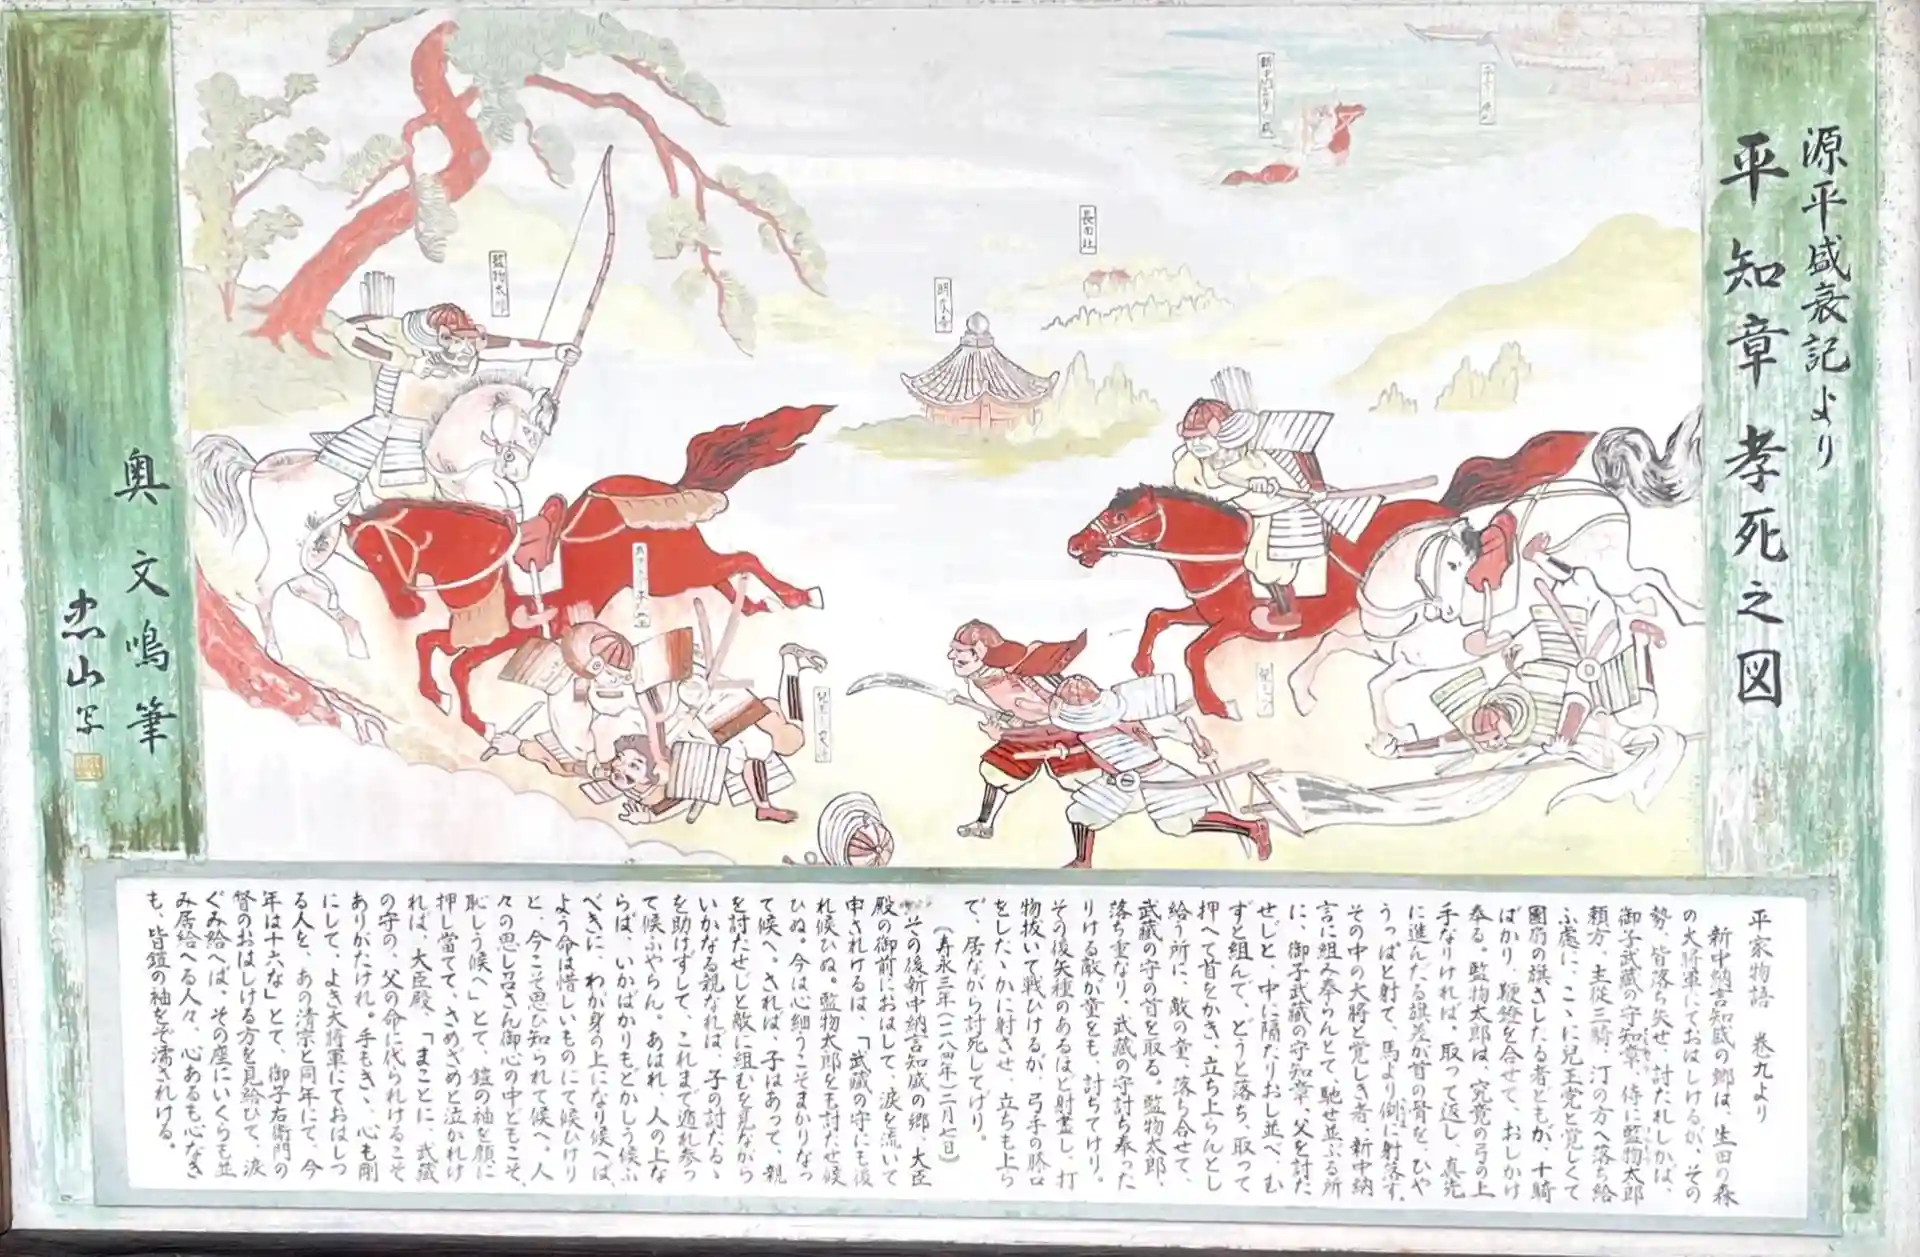 源平盛衰記より
平知章孝死之図
長田社
明泉寺
監物太郎
奥文鳴筆
忠山写
平家物語 巻九より
新中納言知盛の卿は、生田の森
の大将軍にておはしけるが、その
勢、皆落ち失せ、討たれしかば、
御子武蔵の守知章、侍に監物太郎
頼方、主従三騎、汀の方へ落ち給
ふ處に、こゝに児玉党と覚しくて
團扇の旗さしたる者ともが、十騎
ばかり、鞭鐙を合せて、おしかけ
奉る。監物太郎は、究竟の弓の上
手なりければ、取って返し、真先
に進んだる旗差が首の骨を、ひや
うっぱと射て、馬より倒に射落す。
その中の大将と覚しき者、新中納
言に組み奉らんとて、馳せ並ぶる所
に、御子武蔵の守知章、父を討た
せじと、中に隔たりおし並べ、む
ずと組んで、どうと落ち、取って
押へて首をかき、立ち上らんとし
給う所に、敵の童、落ち合せて、
武蔵の守の首を取る。監物太郎、
落ち重なり、武蔵の守討ち奉った
りける敵が童をも、討ちてけり。
その後矢種のあるほど射盡し、打
物抜いて戦ひけるが、弓手の膝口
をしたゝかに射させ、立ちも上ら
で、居ながら討死してけり。
(寿永三年(一一八四年)二月七日)
その後新中納言知盛の卿、大臣
殿の御前におはして、涙を流いて
申されけるは、「武蔵の守にも後
れ候ひぬ。監物太郎をも討たせ候
ひぬ。今は心細うこそまかりなっ
て候へ。されは、子はあって、親
を討たせじと敵に組むを見ながら
いかなる親なれは、子の討たるゝ
を助けずして、これまで遁れ参っ
て候ふやらん。あはれ、人の上な
らば、いかばかりもどかしう候ふ
べきに、わが身の上になり候へば、
よう命は惜しいものにて候ひけり
と、今こそ思ひ知られて候へ。人
々の思し召さん御心の中ともこそ、
恥しう候へ」とて、鎧の袖を顔に
押し當てて、さめざめと泣かれけ
れば、大臣殿、「まことに、武蔵
の守の、父の命に代られけるこそ
ありがたけれ。手もきゝ、心も剛
にして、よき大将軍にておはしつ
る人を、あの清宗と同年にて、今
年は十六な」とて、御子右衛門の
督のおはしける方を見給ひて、涙
ぐみ給へば、その座にいくらも並
み居給へる人々、心あるも心なき
も、皆鎧の袖をぞ濡されける。